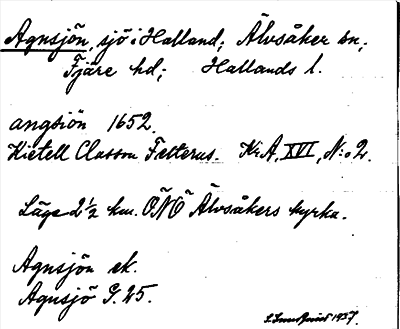 Agnsjön, sjö i Halland; Älvsåker sn,
Fjäre hd; Hallands l.
angsiön 1652.
Kietell Classon Fælterus. KrA, XVI, N:o 2.
Läge 2 1/2 km. ÖNÖ Älvsåkers kyrka.
Agnsjön ek.
Agnsjö G. 25.
1927.